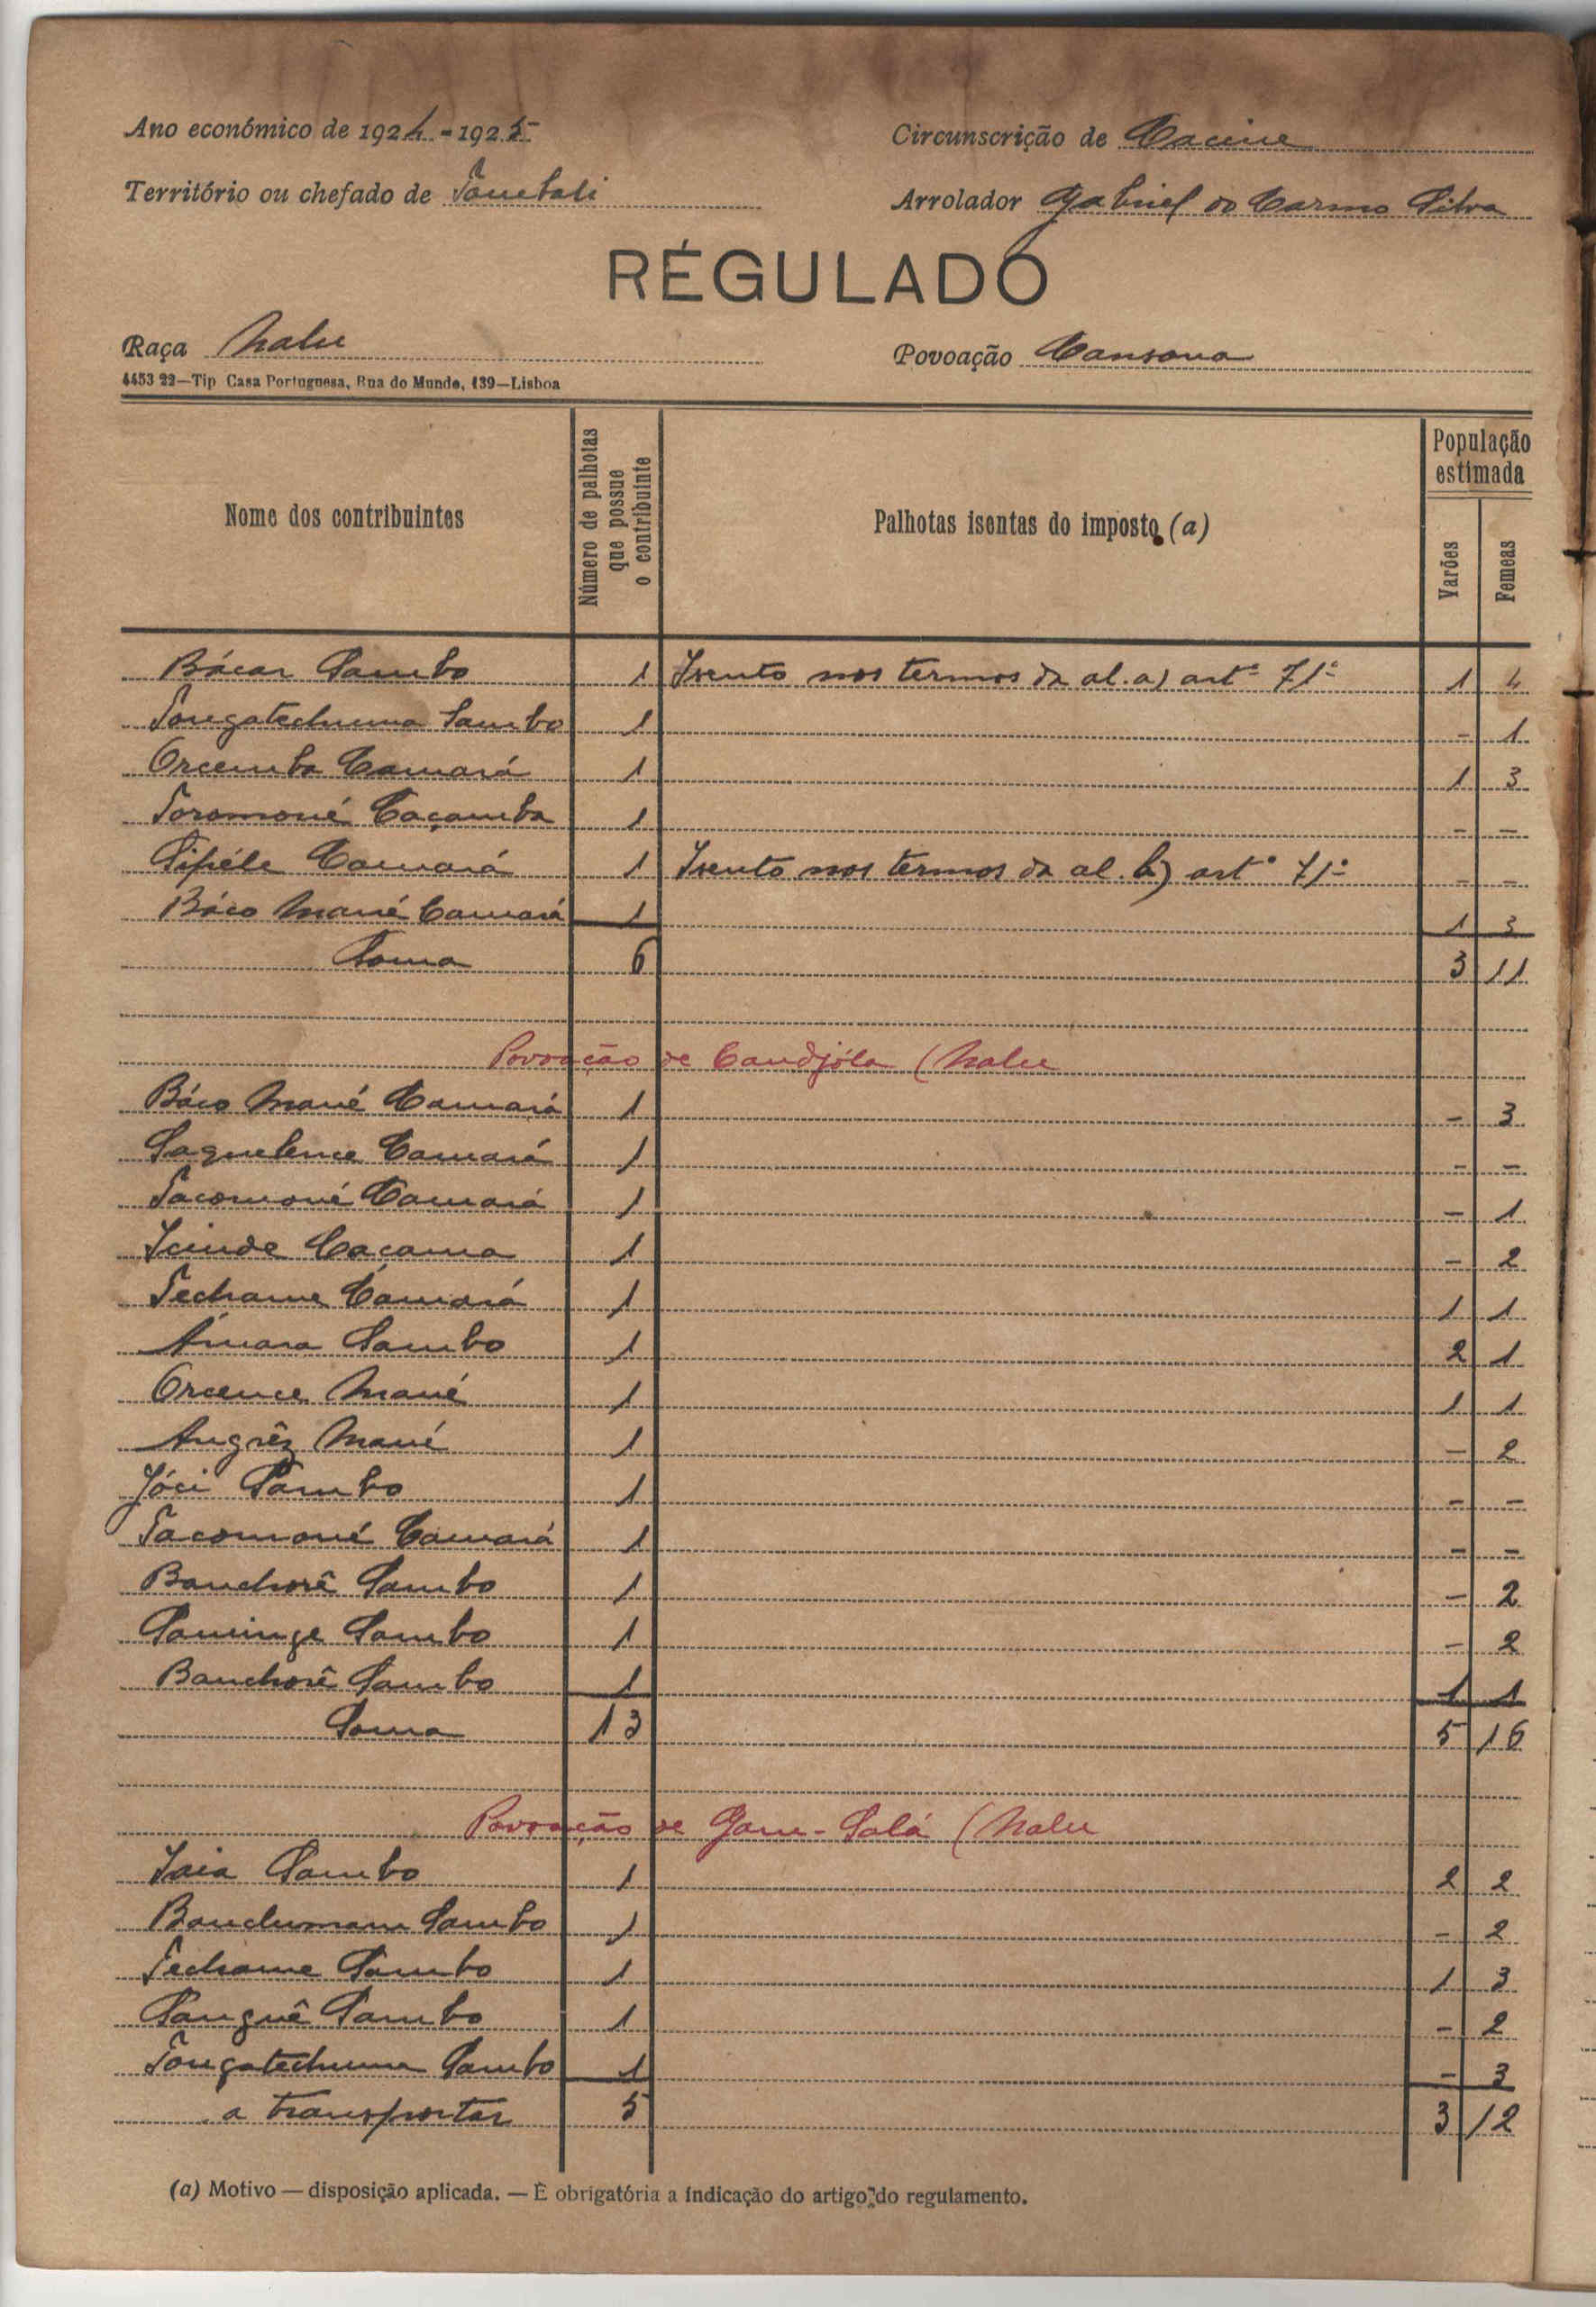 Ano económico de 1924-1925 Circunscrição de Cacine
Território ou chefado de Tombali Arrolador Gabriel do Carmo Silva
RÉGULADO
Raça Nalu Povoação Cansona
4453 22—Tip Casa Portuguesa, Rua do Mundo, 139—Lisboa
Nome dos contribuintes Número de palhotas que possue o contribuinte Palhotas isentas do imposto (a) População estimada Varões Femeas
Bácar Sambo 1 Isento nos termos da al. a) artº 71º 1 4
Tongatechuma Sambo 1 - 1
Orcemba Camará 1 1 3
Toromoné Caçamba 1 - -
Sipéle Camará 1 Isento nos termos da al. b) artº 71º - -
Báco Mané Camará 1 1 3
Soma 6 3 11
Povoação de Candjóla (Nalu
Báco Mané Camará 1 - 3
Saquelence Camará 1 - -
Sacomoné Camará 1 - 1
Icinde Caçama 1 - 2
Techame Camará 1 1 1
Ámara Sambo 1 2 1
Orcence Mané 1 1 1
Angrêz Mané 1 - 2
Jóci Sambo 1 - -
Sacomoné Camará 1 - -
Banchorê Sambo 1 - 2
Saminge Sambo 1 - 2
Banchorê Sambo 1 1 1
Soma 13 5 16
Povoação de Gam-Salá (Nalu
Iaia Sambo 1 2 2
Banchumam Sambo 1 - 2
Techame Sambo 1 1 3
Sanguê Sambo 1 - 2
Tongatechuma Sambo 1 - 3
a transportar 5 3 12
(a) Motivo — disposição aplicada. — É obrigatória a indicação do artigo do regulamento.